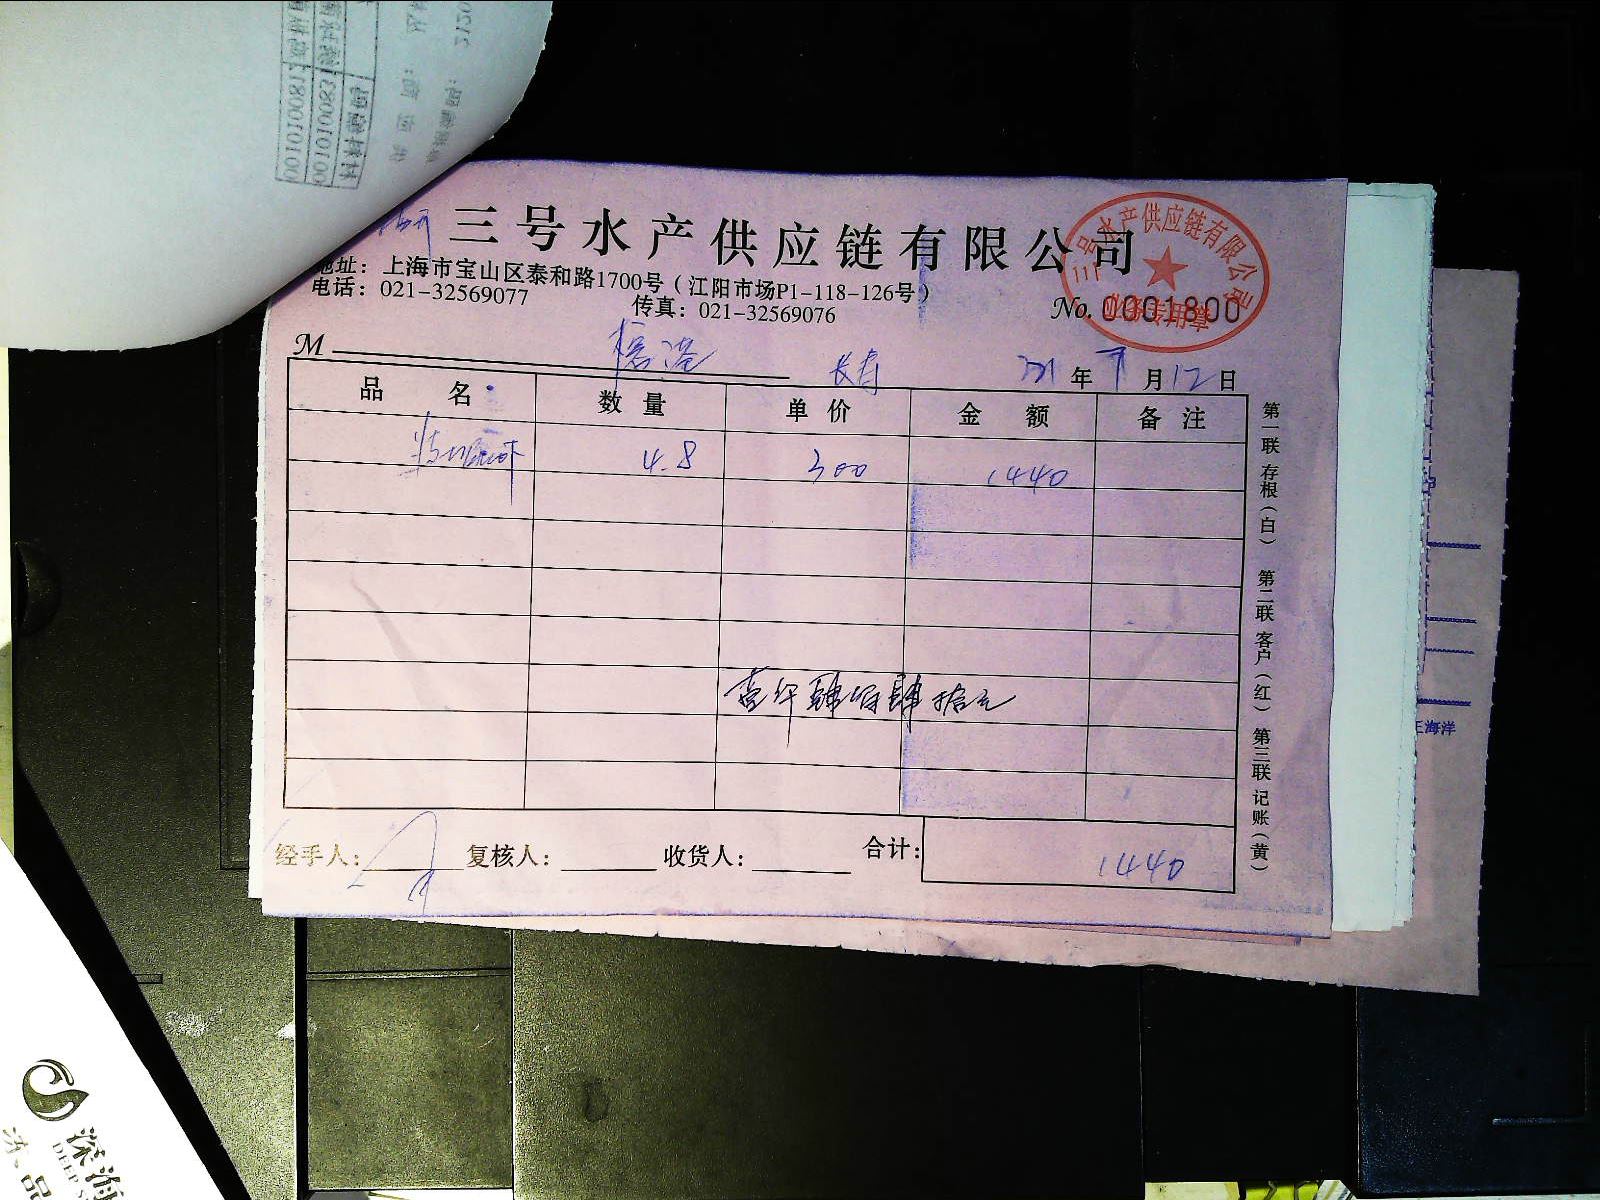 三号水产供应链有限公司
地址：上海市宝山区泰和路1700号（江阳市场P1-118-126号）
电话：021-32569077
传真：021-32569076
No. 0001800
三号水产供应链有限公司
业务专用章
M
长寿
年 月 12 日
品 名 数 量 单 价 金 额 备 注
4.8 300 1440
壹仟肆佰肆拾元
经手人： 复核人： 收货人： 合计： 1440
第一联 存根（白） 第二联 客户（红） 第三联 记账（黄）
王海洋
深海
DEEP
冻品